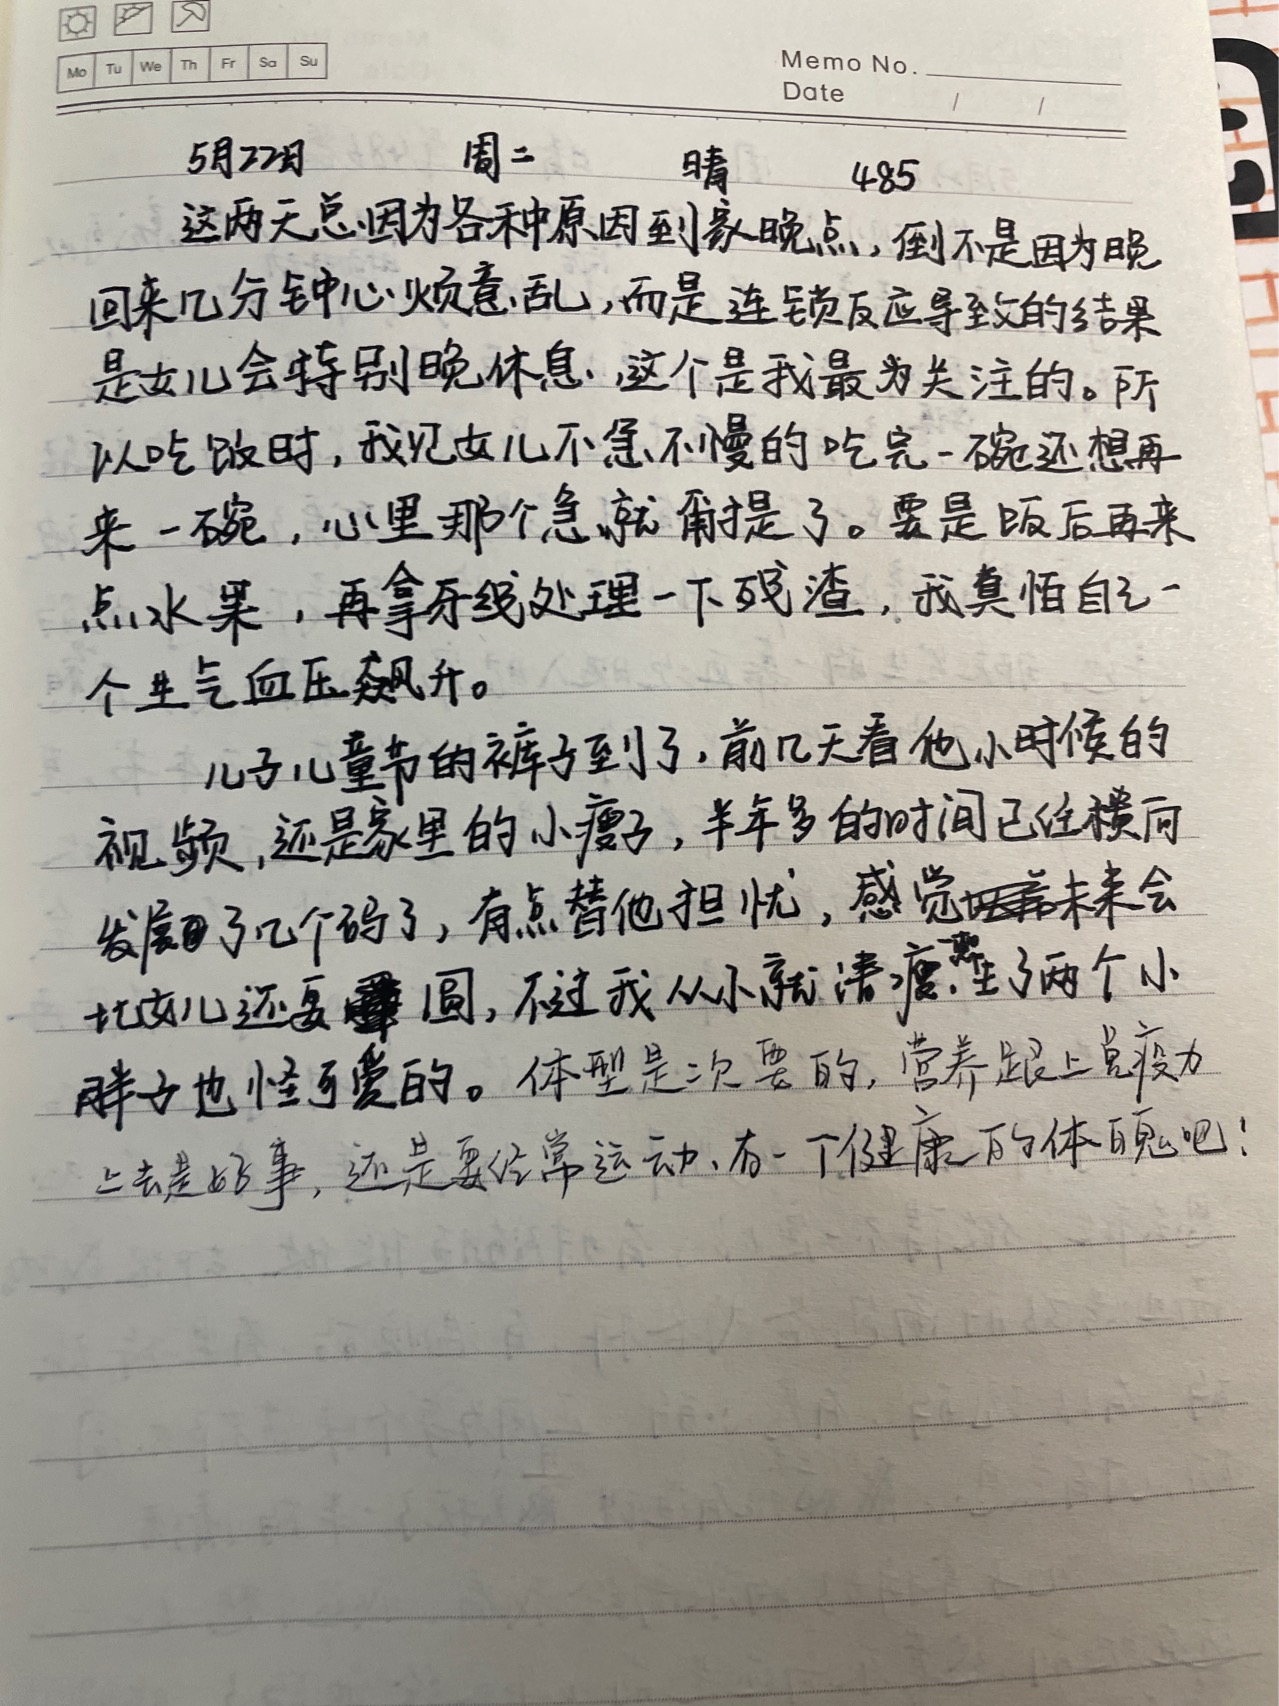 Mo Tu We Th Fr Sa Su
Memo No.
Date / /
5月22日 周二 晴 485
这两天总因为各种原因到家晚点，倒不是因为晚
回来几分钟心烦意乱，而是连锁反应导致的结果
是女儿会特别晚休息，这个是我最为关注的。所
以吃饭时，我见女儿不急不慢的吃完一碗还想再
来一碗，心里那个急就甭提了。要是饭后再来
点水果，再拿牙线处理一下残渣，我真怕自己一
个生气血压飙升。
儿子儿童节的裤子到了，前几天看他小时候的
视频，还是家里的小瘦子，半年多的时间已经横向
发展了几个码了，有点替他担忧，感觉未来会
比女儿还要圆，不过我从小就清瘦，生了两个小
胖子也怪可爱的。体型是次要的，营养跟上免疫力
上去是好事，还是要经常运动、有一个健康的体魄吧！